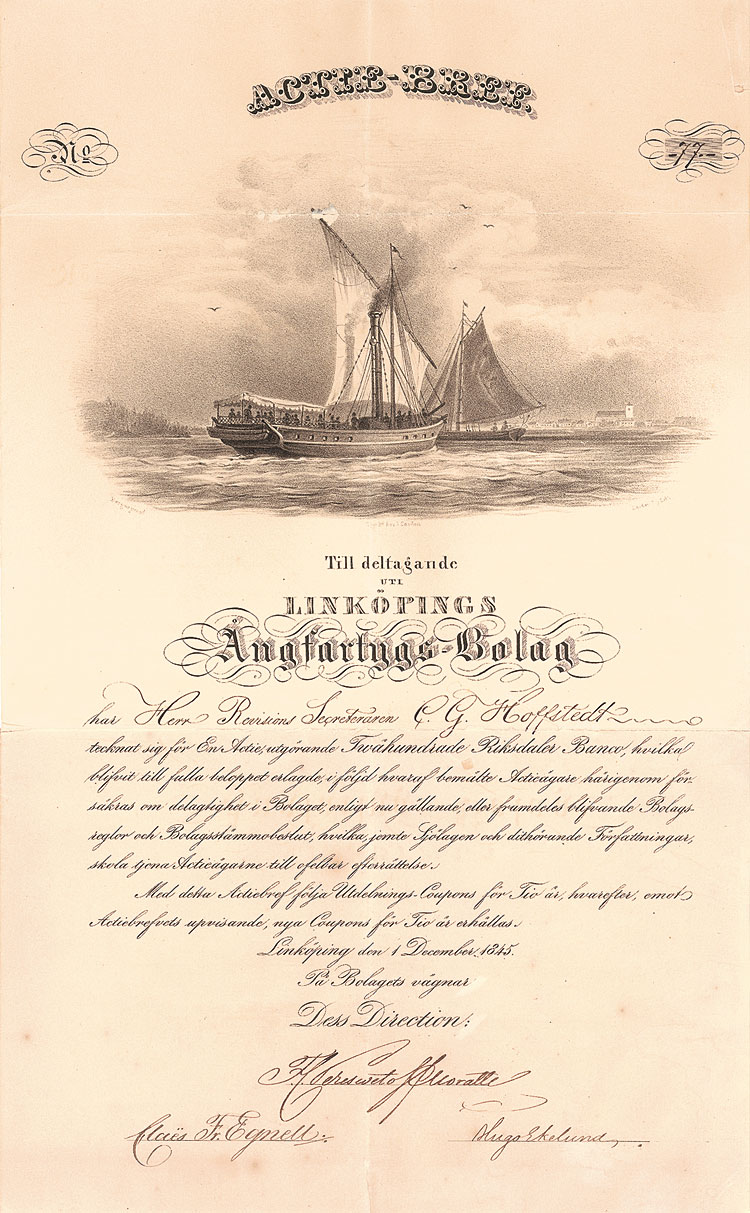 ACTIE-BREF.
No
-77-
Till deltagande
UTI
LINKÖPINGS
Ångfartygs-Bolag
har Herr Revisions Secreteraren C. G. Hoffstedt
tecknat sig för En Actie, utgörande Twåhundrade Riksdaler Banco, hvilka
blifvit till fulla beloppet erlagde, i följd hvaraf bemälte Actieägare härigenom för-
säkras om delagtighet i Bolaget, enligt nu gällande, eller framdeles blifvande Bolags-
reglor och Bolagsstämmobeslut, hvilka, jemte Sjölagen och dithörande Författningar,
skola tjena Actieägarne till ofelbar efterrättelse.
Med detta Actiebref följa Utdelnings-Coupons för Tio år, hvarefter, emot
Actiebrefvets upvisande, nya Coupons för Tio år erhållas.
Linköping den 1 December 1845.
På Bolagets vägnar
Dess Direction:
Claës Fr. Egnell.
Hugo Ekelund